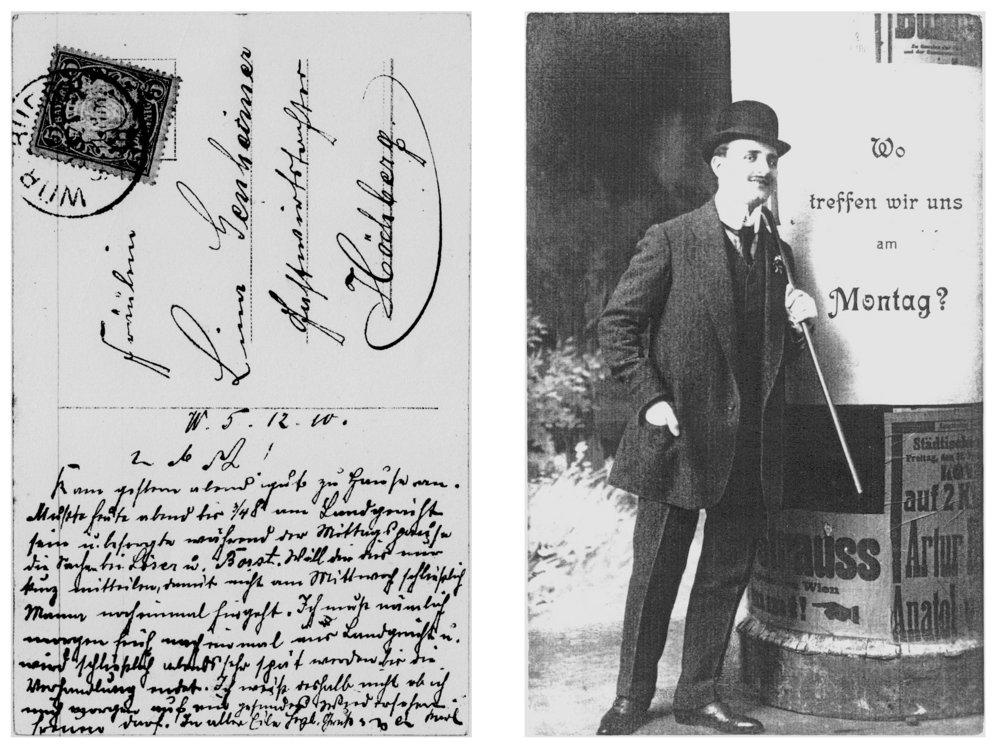 Fräulein
Genheimer
Gastwirtstochter
Höchberg.
W. 5. 12. 10.
Kam gestern abend gut zu Hause an.
Mußte heute abend bis 3/48 am Landgericht
sein u. besorgte während der Mittagspause
die Sachen bei u. Borst. Will dir dies nur
kurz mitteilen, damit nicht am Mittwoch schließlich
Mama noch einmal hergeht. Ich muß nämlich
morgen früh noch einmal ans Landgericht u.
wird schließlich abends sehr spät werden bis die
Verhandlung endet. Ich weiß deshalb nicht ob ich
mich morgen auf ein gesundes Wiedersehen
freuen darf. In aller Eile herzl. Gruß
Wo
treffen wir uns
am
Montag?
Städtische
Freitag, den
auf 2 K
Artur
Wien
Anatol